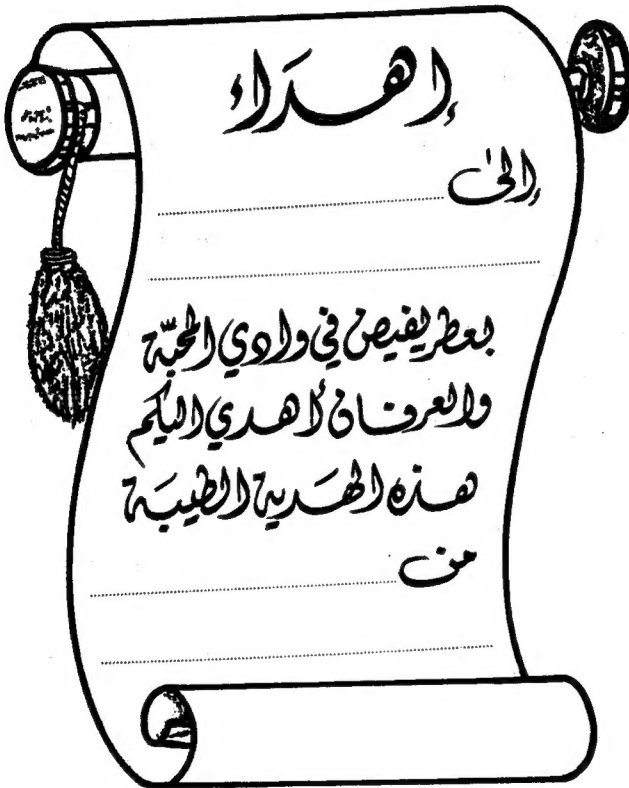 إهدَاء
إلىٰ
بعطر يفيض في وادي المحبّة
والعرفان أهدي اليكم
هذه الهَدية الطيبَة
من